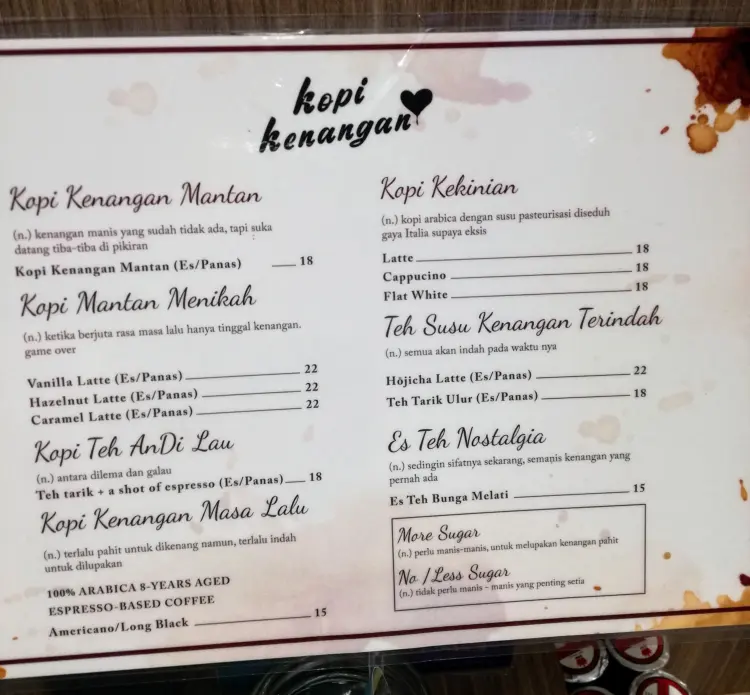 kopi
kenangan
Kopi Kenangan Mantan
(n.) kenangan manis yang sudah tidak ada, tapi suka
datang tiba-tiba di pikiran
Kopi Kenangan Mantan (Es/Panas) 18
Kopi Mantan Menikah
(n.) ketika berjuta rasa masa lalu hanya tinggal kenangan.
game over
Vanilla Latte (Es/Panas) 22
Hazelnut Latte (Es/Panas) 22
Caramel Latte (Es/Panas) 22
Kopi Teh AnDi Lau
(n.) antara dilema dan galau
Teh tarik + a shot of espresso (Es/Panas) 18
Kopi Kenangan Masa Lalu
(n.) terlalu pahit untuk dikenang namun, terlalu indah
untuk dilupakan
100% ARABICA 8-YEARS AGED
ESPRESSO-BASED COFFEE
Americano/Long Black 15
Kopi Kekinian
(n.) kopi arabica dengan susu pasteurisasi diseduh
gaya Italia supaya eksis
Latte 18
Cappucino 18
Flat White 18
Teh Susu Kenangan Terindah
(n.) semua akan indah pada waktu nya
Hōjicha Latte (Es/Panas) 22
Teh Tarik Ulur (Es/Panas) 18
Es Teh Nostalgia
(n.) sedingin sifatnya sekarang, semanis kenangan yang
pernah ada
Es Teh Bunga Melati 15
More Sugar
(n.) perlu manis-manis, untuk melupakan kenangan pahit
No /Less Sugar
(n.) tidak perlu manis - manis yang penting setia